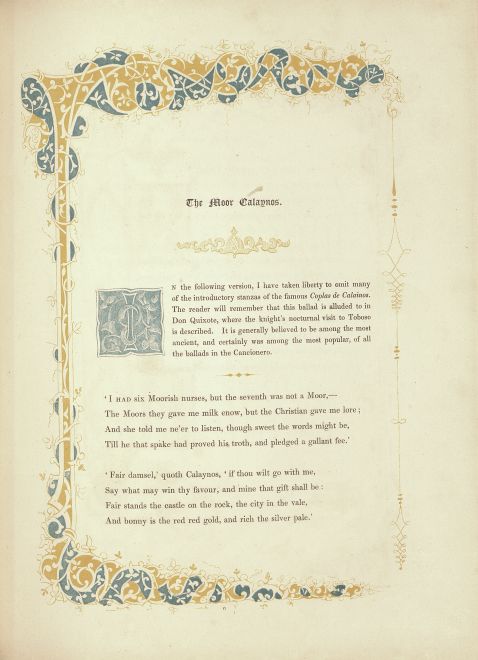 The Moor Calaynos.
IN the following version, I have taken liberty to omit many
of the introductory stanzas of the famous Coplas de Calainos.
The reader will remember that this ballad is alluded to in
Don Quixote, where the knight's nocturnal visit to Toboso
is described. It is generally believed to be among the most
ancient, and certainly was among the most popular, of all
the ballads in the Cancionero.
‘ I HAD six Moorish nurses, but the seventh was not a Moor,—
The Moors they gave me milk enow, but the Christian gave me lore ;
And she told me ne'er to listen, though sweet the words might be,
Till he that spake had proved his troth, and pledged a gallant fee.’
‘ Fair damsel,’ quoth Calaynos, ‘ if thou wilt go with me,
Say what may win thy favour, and mine that gift shall be :
Fair stands the castle on the rock, the city in the vale,
And bonny is the red red gold, and rich the silver pale.’